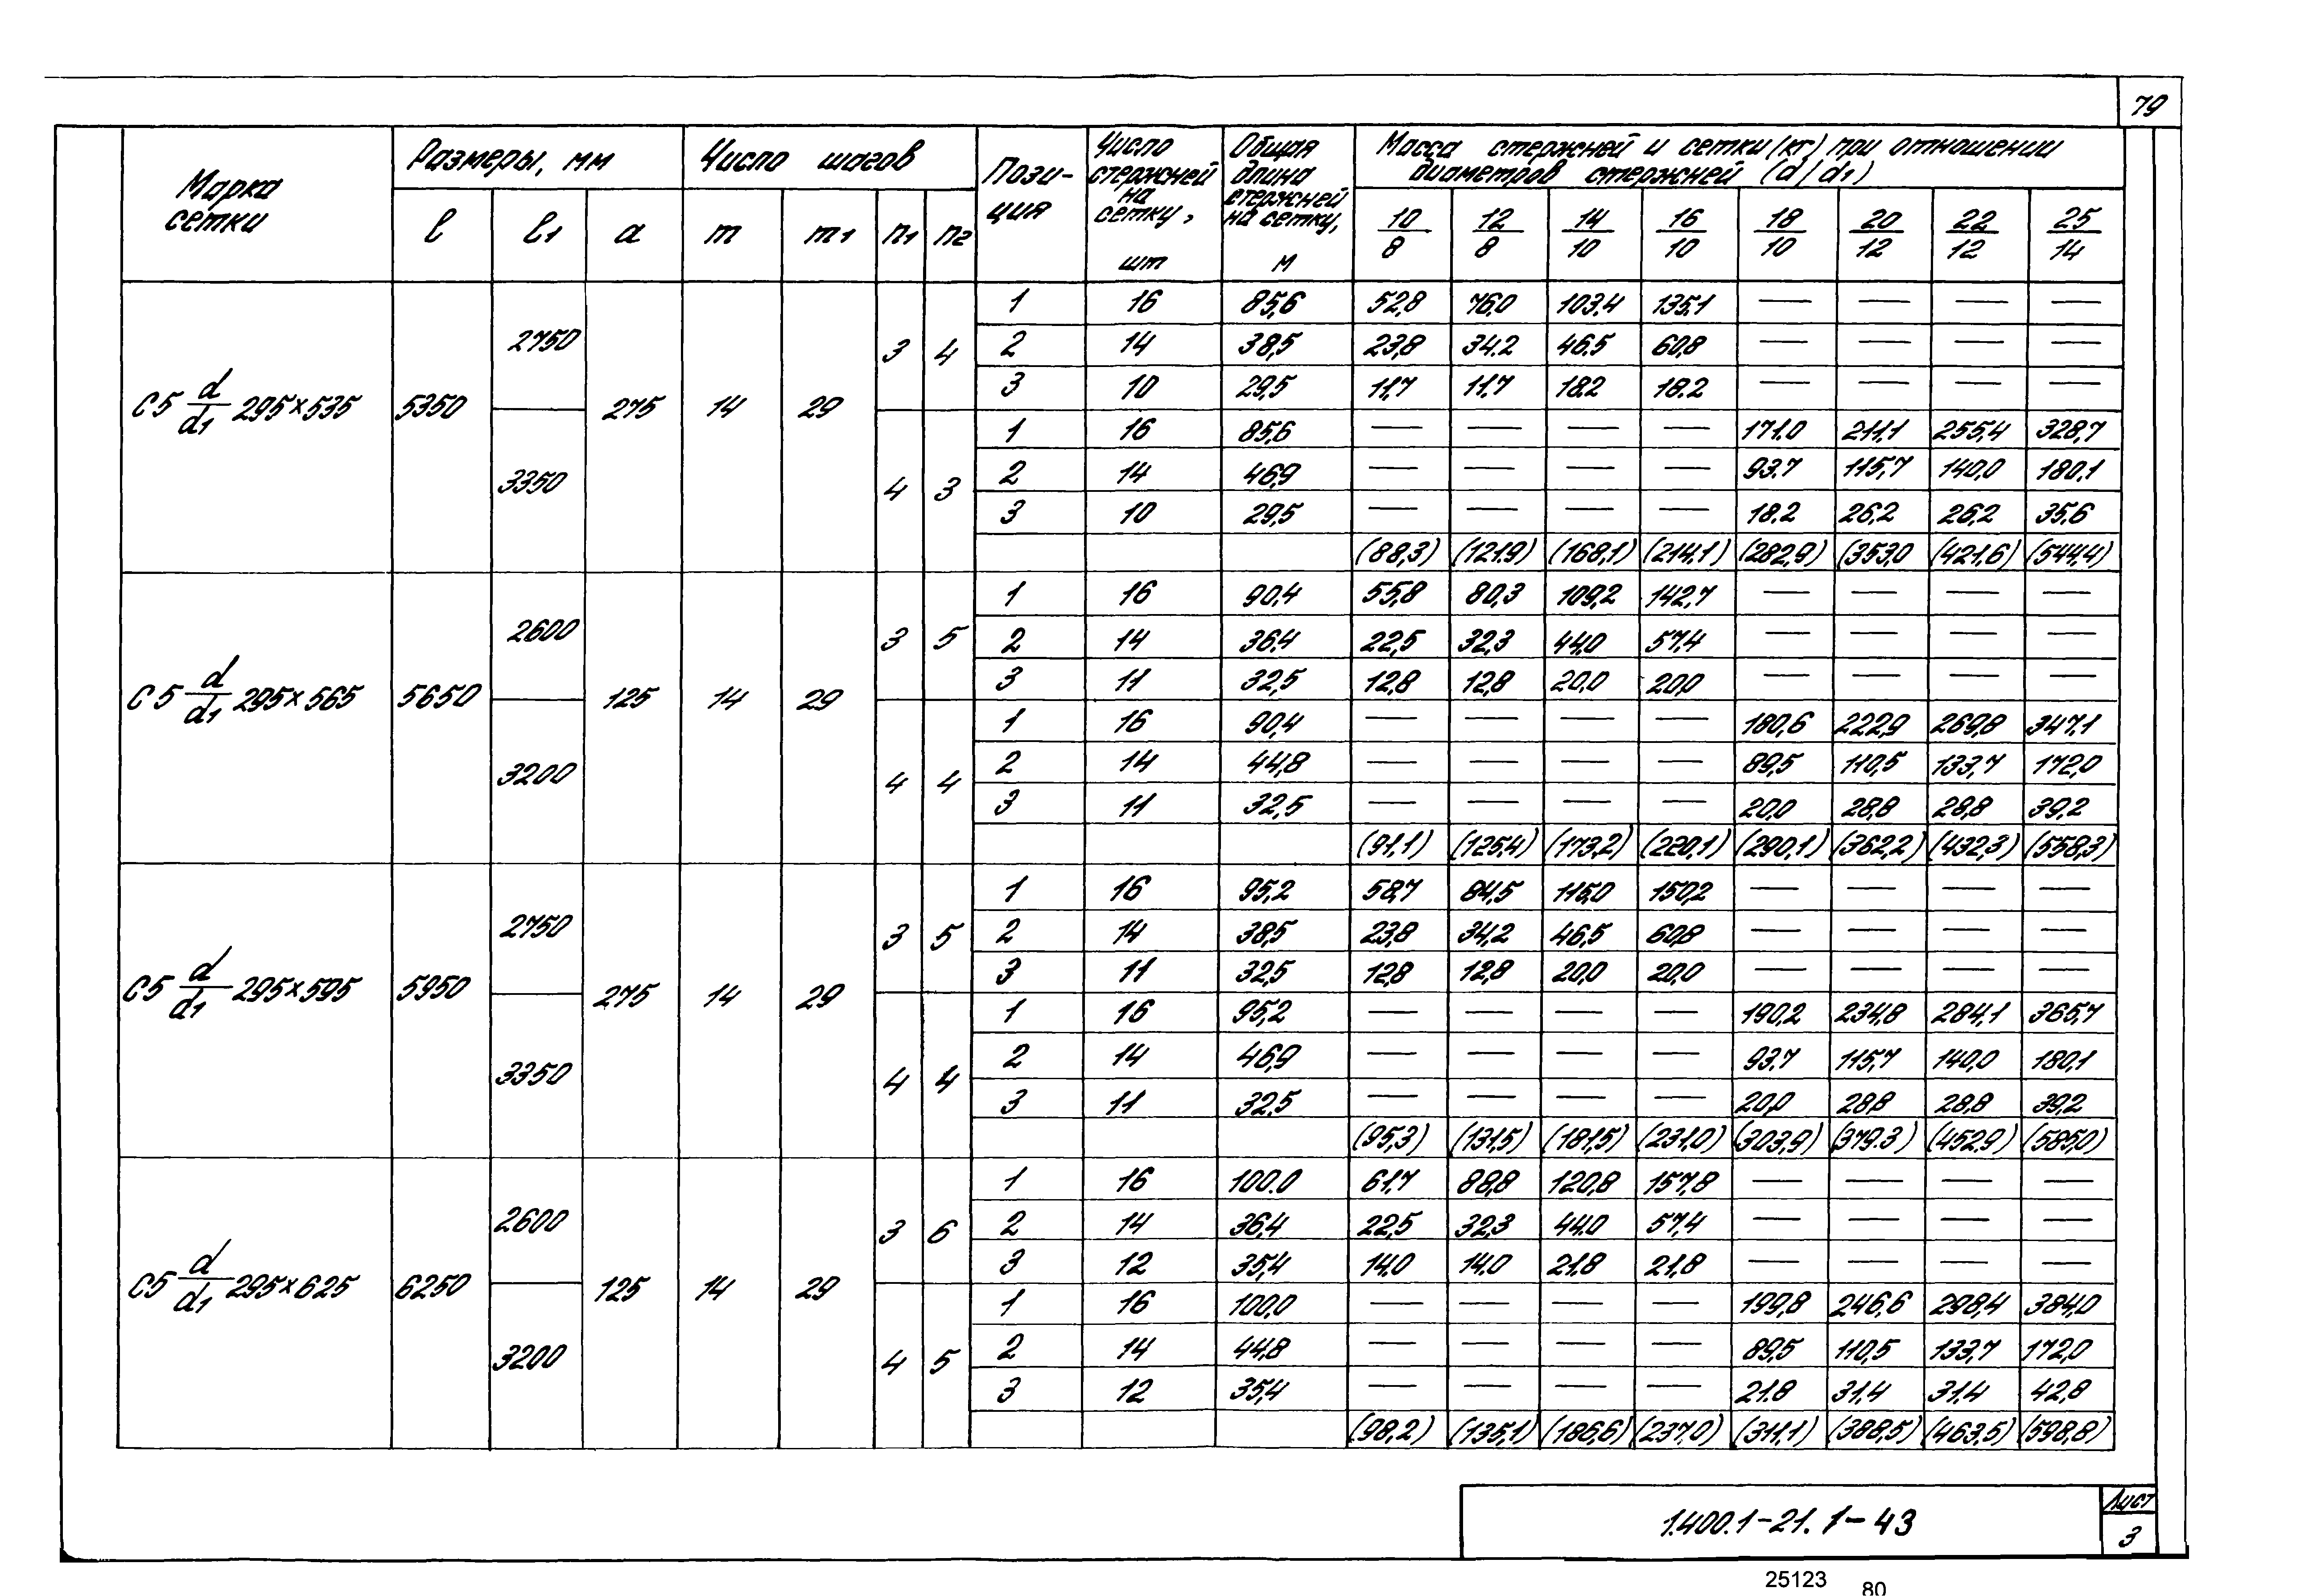 79
Марка сетки | Размеры, мм | Число шагов | Пози-ция | Число стержней на сетку, шт | Общая длина стержней на сетку, м | Масса стержней и сетки (кг) при отношении диаметров стержней (d/d1)
l | l1 | a | m | m1 | n1 | n2 | 10/8 | 12/8 | 14/10 | 16/10 | 18/10 | 20/12 | 22/12 | 25/14
С5 d/d1 295×535 | 5350 | 275 | 14 | 29
2750 | 3 | 4
1 | 16 | 85,6 | 52,8 | 76,0 | 103,4 | 135,1 | — | — | — | —
2 | 14 | 38,5 | 23,8 | 34.2 | 46.5 | 60,8 | — | — | — | —
3 | 10 | 29,5 | 11,7 | 11.7 | 18.2 | 18.2 | — | — | — | —
3350 | 4 | 3
1 | 16 | 85,6 | — | — | — | — | 171.0 | 211,1 | 255,4 | 328,7
2 | 14 | 46,9 | — | — | — | — | 93.7 | 115,7 | 140,0 | 180,1
3 | 10 | 29,5 | — | — | — | — | 18.2 | 26,2 | 26,2 | 35,6
(88,3) | (121.9) | (168,1) | (214,1) | (282,9) | (353,0 | (421,6) | (544,4)
С5 d/d1 295×565 | 5650 | 125 | 14 | 29
2600 | 3 | 5
1 | 16 | 90,4 | 55,8 | 80,3 | 109,2 | 142,7 | — | — | — | —
2 | 14 | 36,4 | 22,5 | 32,3 | 44,0 | 57,4 | — | — | — | —
3 | 11 | 32,5 | 12,8 | 12,8 | 20,0 | 20,0 | — | — | — | —
3200 | 4 | 4
1 | 16 | 90,4 | — | — | — | — | 180,6 | 222,9 | 269,8 | 347,1
2 | 14 | 44,8 | — | — | — | — | 89,5 | 110,5 | 133,7 | 172,0
3 | 11 | 32,5 | — | — | — | — | 20,0 | 28,8 | 28,8 | 39,2
(91,1) | (125,4) | (173,2) | (220,1) | (290,1) | (362,2) | (432,3) | (558,3)
С5 d/d1 295×595 | 5950 | 275 | 14 | 29
2750 | 3 | 5
1 | 16 | 95,2 | 58,7 | 84,5 | 115,0 | 150,2 | — | — | — | —
2 | 14 | 38,5 | 23,8 | 34,2 | 46,5 | 60,8 | — | — | — | —
3 | 11 | 32,5 | 12,8 | 12,8 | 20,0 | 20,0 | — | — | — | —
3350 | 4 | 4
1 | 16 | 95,2 | — | — | — | — | 190,2 | 234,8 | 284,1 | 365,7
2 | 14 | 46,9 | — | — | — | — | 93.7 | 115,7 | 140,0 | 180,1
3 | 11 | 32,5 | — | — | — | — | 20,0 | 28,8 | 28,8 | 39,2
(95,3) | (131,5) | (181,5) | (231,0) | (303,9) | (379.3) | (452,9) | (585,0)
С5 d/d1 295×625 | 6250 | 125 | 14 | 29
2600 | 3 | 6
1 | 16 | 100.0 | 61,7 | 88,8 | 120,8 | 157,8 | — | — | — | —
2 | 14 | 36,4 | 22,5 | 32,3 | 44.0 | 57,4 | — | — | — | —
3 | 12 | 35,4 | 14,0 | 14.0 | 21,8 | 21,8 | — | — | — | —
3200 | 4 | 5
1 | 16 | 100,0 | — | — | — | — | 199,8 | 246,6 | 298,4 | 384,0
2 | 14 | 44,8 | — | — | — | — | 89,5 | 110,5 | 133,7 | 172,0
3 | 12 | 35,4 | — | — | — | — | 21.8 | 31,4 | 31.4 | 42,8
(98,2) | (135,1) | (186,6) | (237,0) | (311,1) | (388,5) | (463,5) | (598,8)
1.400.1-21. 1-43
Лист
3
25123
80